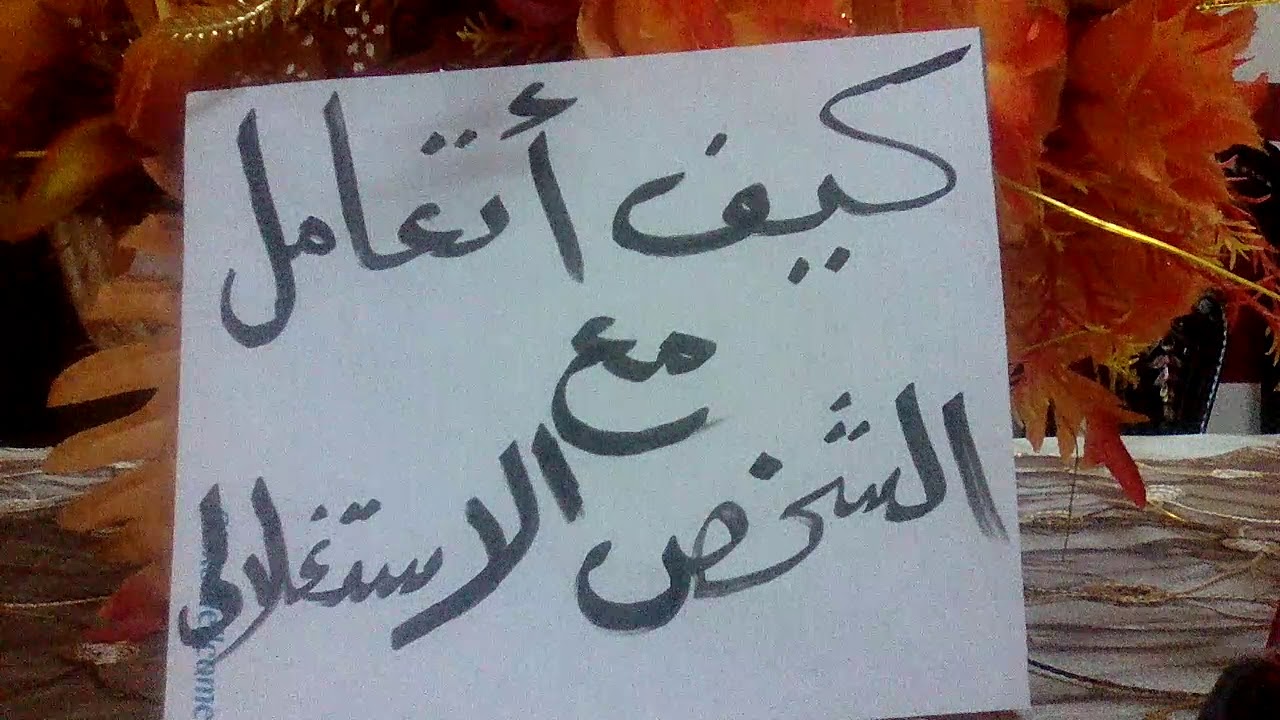 كيف أتعامل
مع
الشخص الاستغلالي